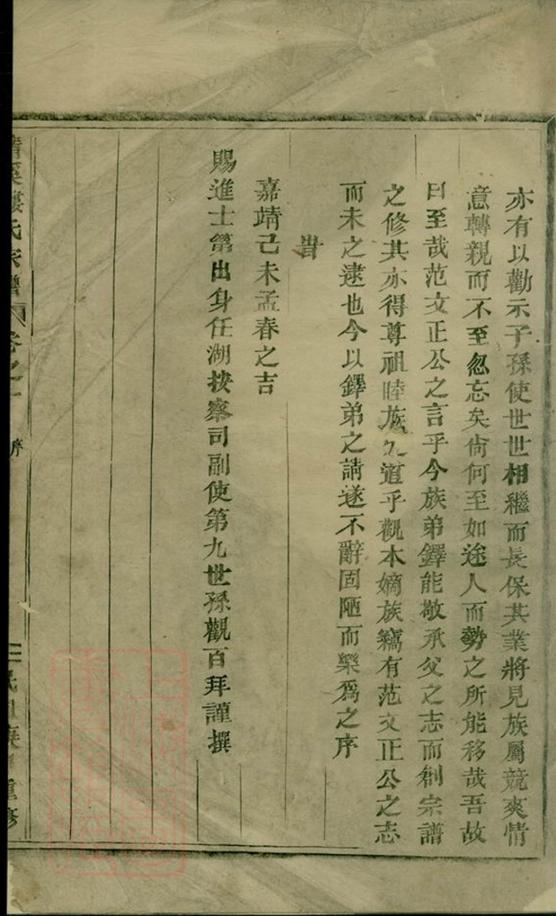 亦有以勸示子孫使世世相繼而長保其業將見族屬競爽情
意轉親而不至忽忘矣尙何至如途人而勢之所能移哉吾故
曰至哉范文正公之言乎今族弟鐸能敬承父之志而創宗譜
之修其亦得尊祖睦族之道乎觀本嫡族竊有范文正公之志
而未之逮也今以鐸弟之請遂不辭固陋而樂爲之序
旹
嘉靖己未孟春之吉
賜進士第出身任湖按察司副使第九世孫觀百拜謹撰
氏家譜 卷之
序
重修